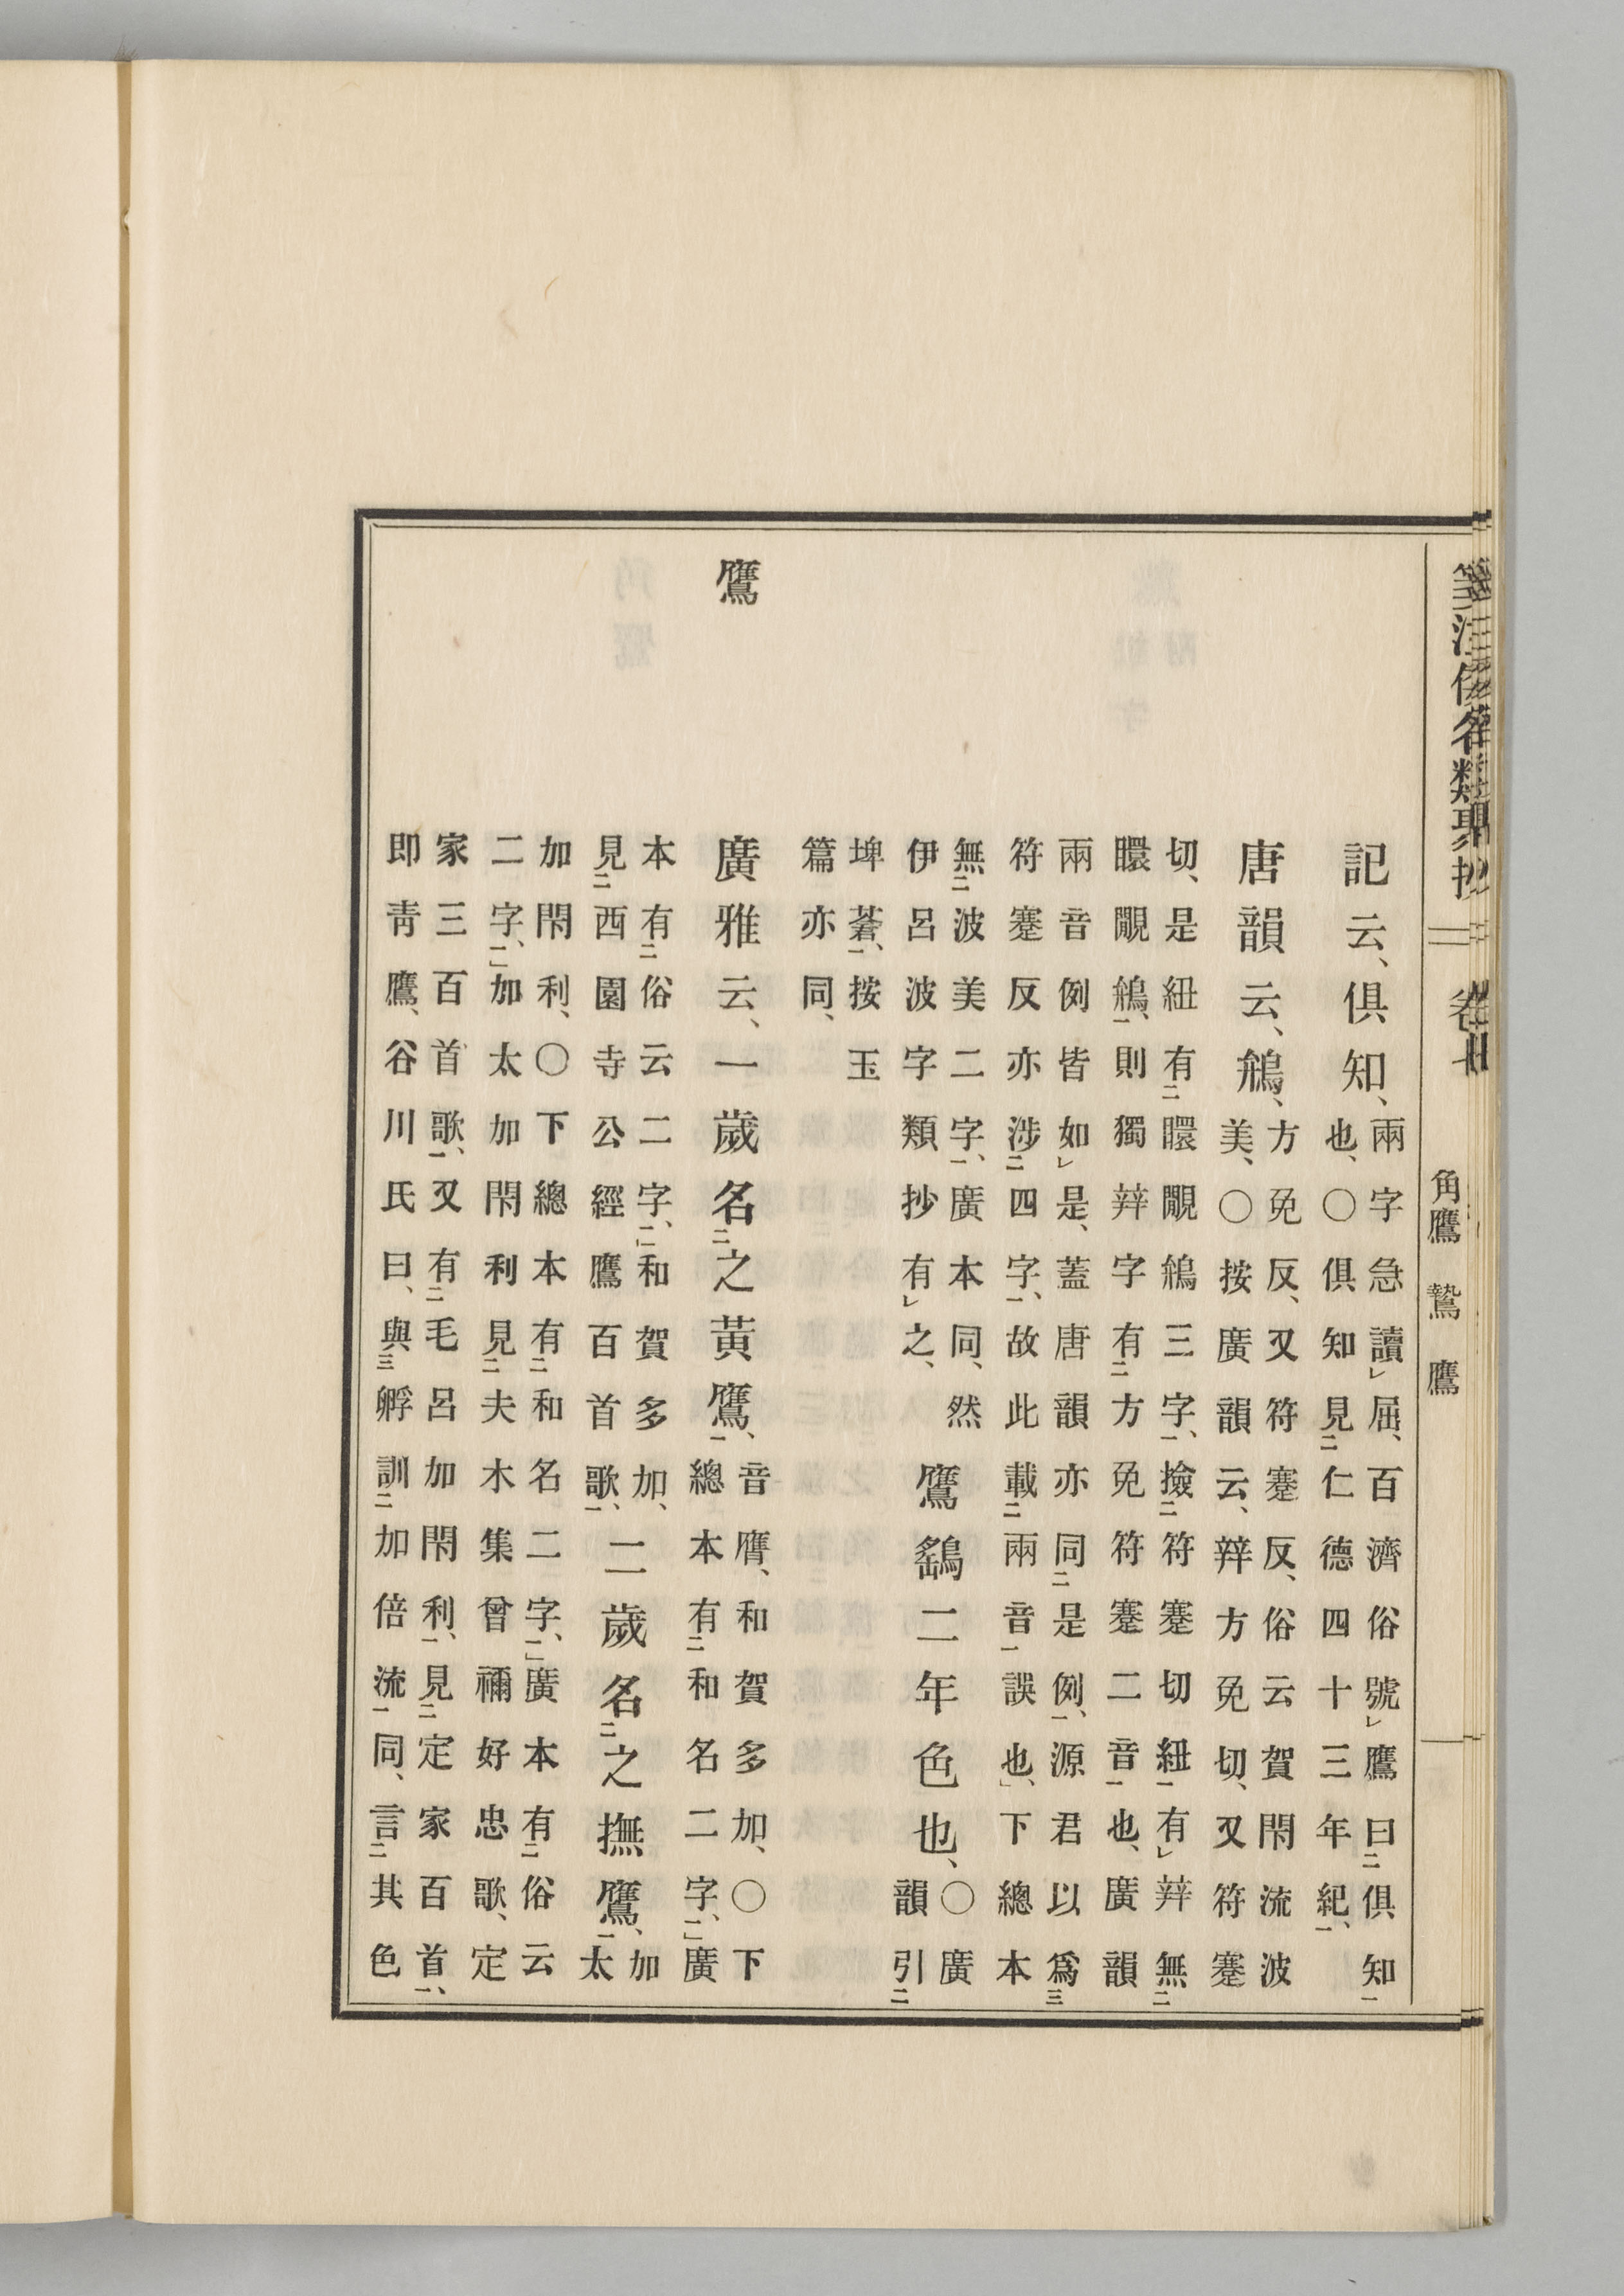 箋注倭名類聚抄 卷七 角鷹 鷙 鷹
記云、俱知、
兩字急讀屈、百濟俗號鷹曰俱知
也、〇俱知見仁德四十三年紀、
唐韻云、鴘、
方免反、又符蹇反、俗云賀閇流波
美、〇按廣韻云、辡方免切、又符蹇
切、是紐有䁵覵鴘三字、撿符蹇切紐有辡無
䁵覵鴘、則獨辡字有方免符蹇二音也、廣韻
兩音例皆如是、蓋唐韻亦同是例、源君以爲
符蹇反亦涉四字、故此載兩音誤也、下總本
無波美二字、廣本同、然
伊呂波字類抄有之、
鷹鷂二年色也、
〇廣
韻引
埤蒼、按玉
篇亦同、
鷹
廣雅云、一歲名之黃鷹、
音膺、和賀多加、〇下
總本有和名二字、廣
本有俗云二字、和賀多加、
見西園寺公經鷹百首歌、
二歲名之撫鷹、
加
太
加閇利、〇下總本有和名二字、廣本有俗云
二字、加太加閇利見夫木集曾禰好忠歌、定
家三百首歌、又有毛呂加閇利、見定家百首、
即靑鷹、谷川氏曰、與孵訓加倍流同、言其色